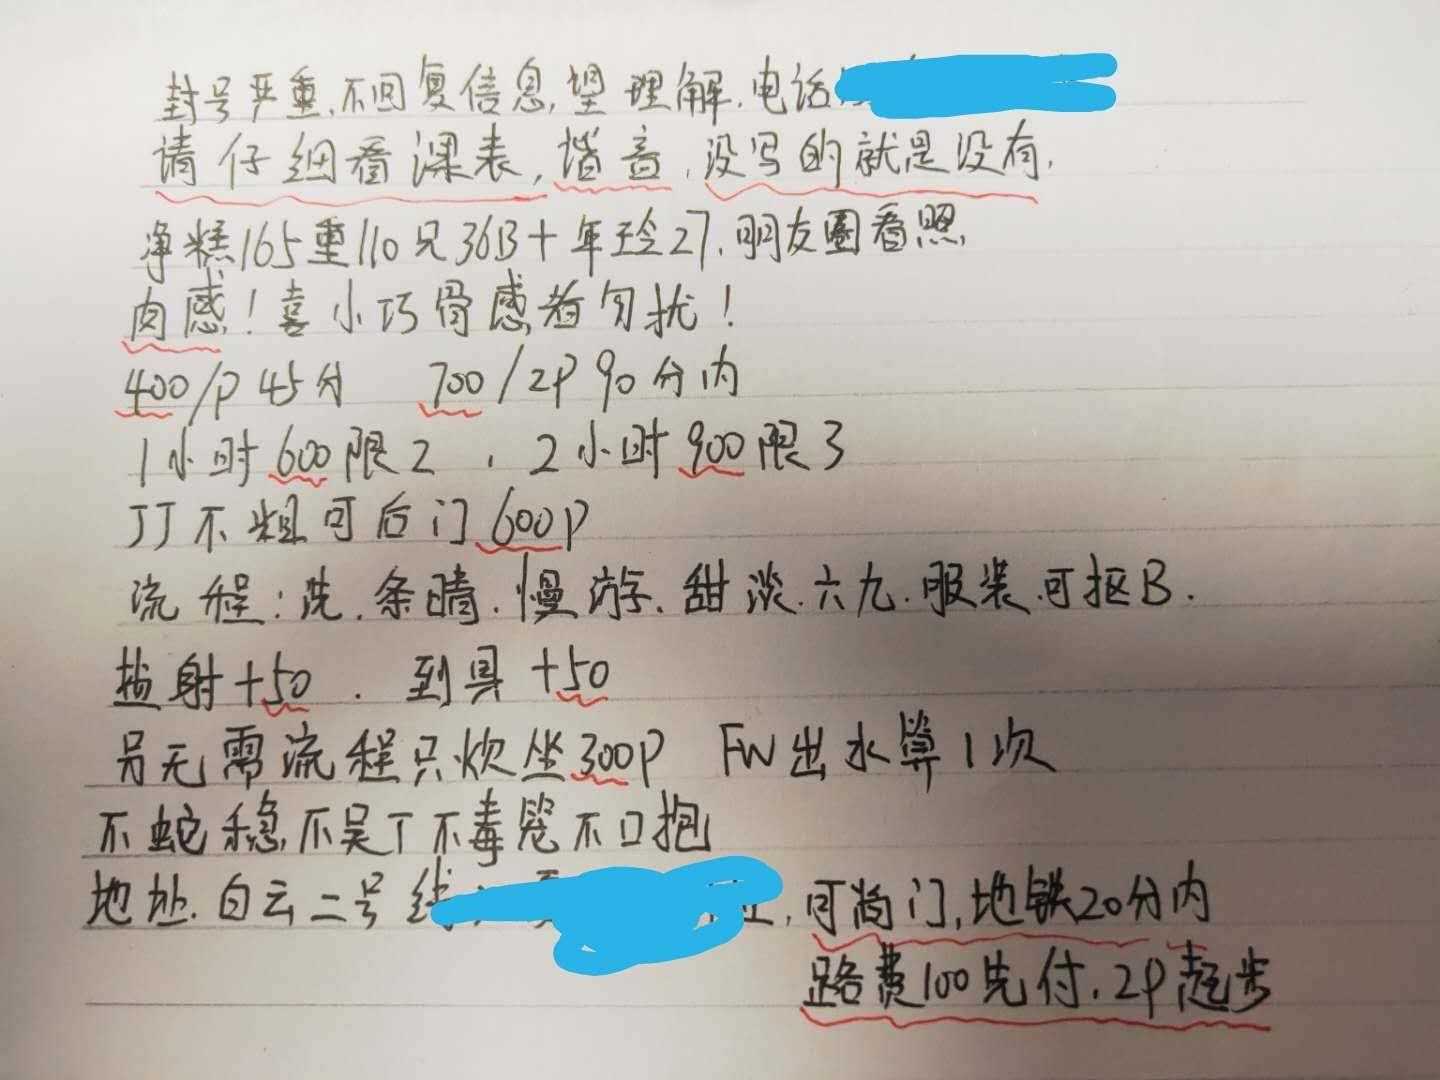 封号严重.不回复信息,望理解.电话
请仔细看课表,谐音,没写的就是没有,
净糕165重110兄36B+年玲27.朋友圈看照
肉感!喜小巧骨感者勿扰!
400/P 45分 700/2P 90分内
1小时600限2,2小时900限3
JJ不粗可后门600P
流程:洗.条晴.慢游.甜淡.六九.服装.可抠B.
盐射+50.到具+50
另无需流程只炊坐300P FW出水算1次
不蛇稳,不吴T不毒笼不口抱
地址.白云二号线 ,可尚门,地铁20分内
路费100先付.2P起步